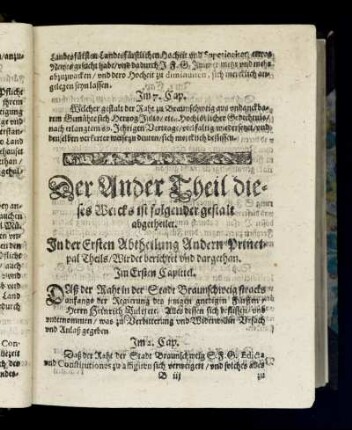 Landesfürsten Landesfürstlichen Hocheit vnd Superioritet etwas
Newes gesucht habe/ vnd dadurch J. F. G. immer mehr vnd mehr
abzuzwacken/ vnd dero Hocheit zu diminuiren, sich mercklich an-
gelegen seyn lassen.
Im 7. Cap.
Welcher gestalt der Raht zu Braunschweig aus vndanckba-
rem Gemühte sich Hertzog Julio/ etc. Hochlöblicher Gedechtnis/
nach erlangtem Jehrigen Vertrage/ vielfaltig widersetzt/ vnd
denselben verkerter weise zu deuten/ sich mercklich beflissen.
Der Ander Theil die-
ses Wercks ist folgender gestalt
abgetheilet.
In der Ersten Abtheilung Andern Princi-
pal Theils/ Wirdet berichtet vnd dargethan.
Im Ersten Capittel.
Daß der Raht in der Stadt Braunschweig stracks
anfangs der Regierung des jetzigen gnedigen Fürsten/
Herrn Heinrich Julij etc. Alles dessen sich beflissen/ vnd
vnternommen/ was zu Verbitterung vnd Widerwillen Vrsach
vnd Anlaß gegeben
Im 2. Cap.
Daß der Raht der Stadt Braunschweig S. F. G. Edicta
vnd Constitutiones zu affigiren sich verweigert/ vnd solches alles
B iij
zu